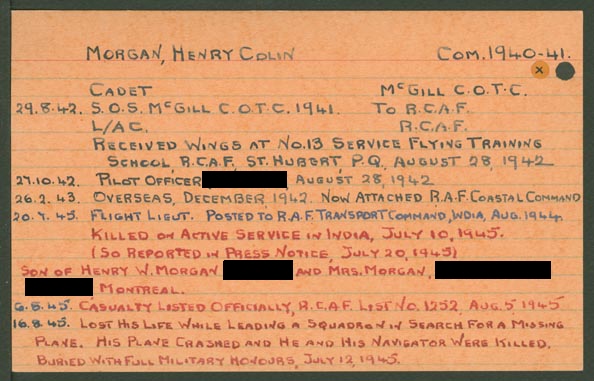 MORGAN, HENRY COLIN COM. 1940-41.
CADET McGILL C.O.T.C.
29.8.42. S.O.S. McGILL C.O.T.C. 1941. TO R.C.A.F.
L/AC. R.C.A.F.
RECEIVED WINGS AT NO.13 SERVICE FLYING TRAINING
SCHOOL, R.C.A.F., ST. HUBERT, P.Q., AUGUST 28, 1942
27.10.42. PILOT OFFICER , AUGUST 28, 1942
26.2.43. OVERSEAS, DECEMBER 1942. NOW ATTACHED R.A.F. COASTAL COMMAND
20.7.45. FLIGHT LIEUT. POSTED TO R.A.F. TRANSPORT COMMAND, INDIA, AUG. 1944.
KILLED ON ACTIVE SERVICE IN INDIA, JULY 10, 1945.
(SO REPORTED IN PRESS NOTICE, JULY 20, 1945)
SON OF HENRY W. MORGAN AND MRS. MORGAN,
MONTREAL.
6.8.45. CASUALTY LISTED OFFICIALLY, R.C.A.F. LIST NO. 1252, AUG. 5, 1945
16.8.45. LOST HIS LIFE WHILE LEADING A SQUADRON IN SEARCH FOR A MISSING
PLANE. HIS PLANE CRASHED AND HE AND HIS NAVIGATOR WERE KILLED.
BURIED WITH FULL MILITARY HONOURS, JULY 12, 1945.